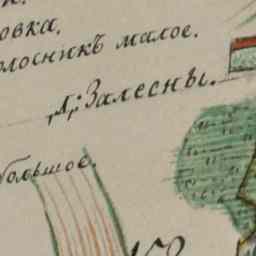 овка.
олосникъ малое.
„Д„: Залесны.
большое.
158